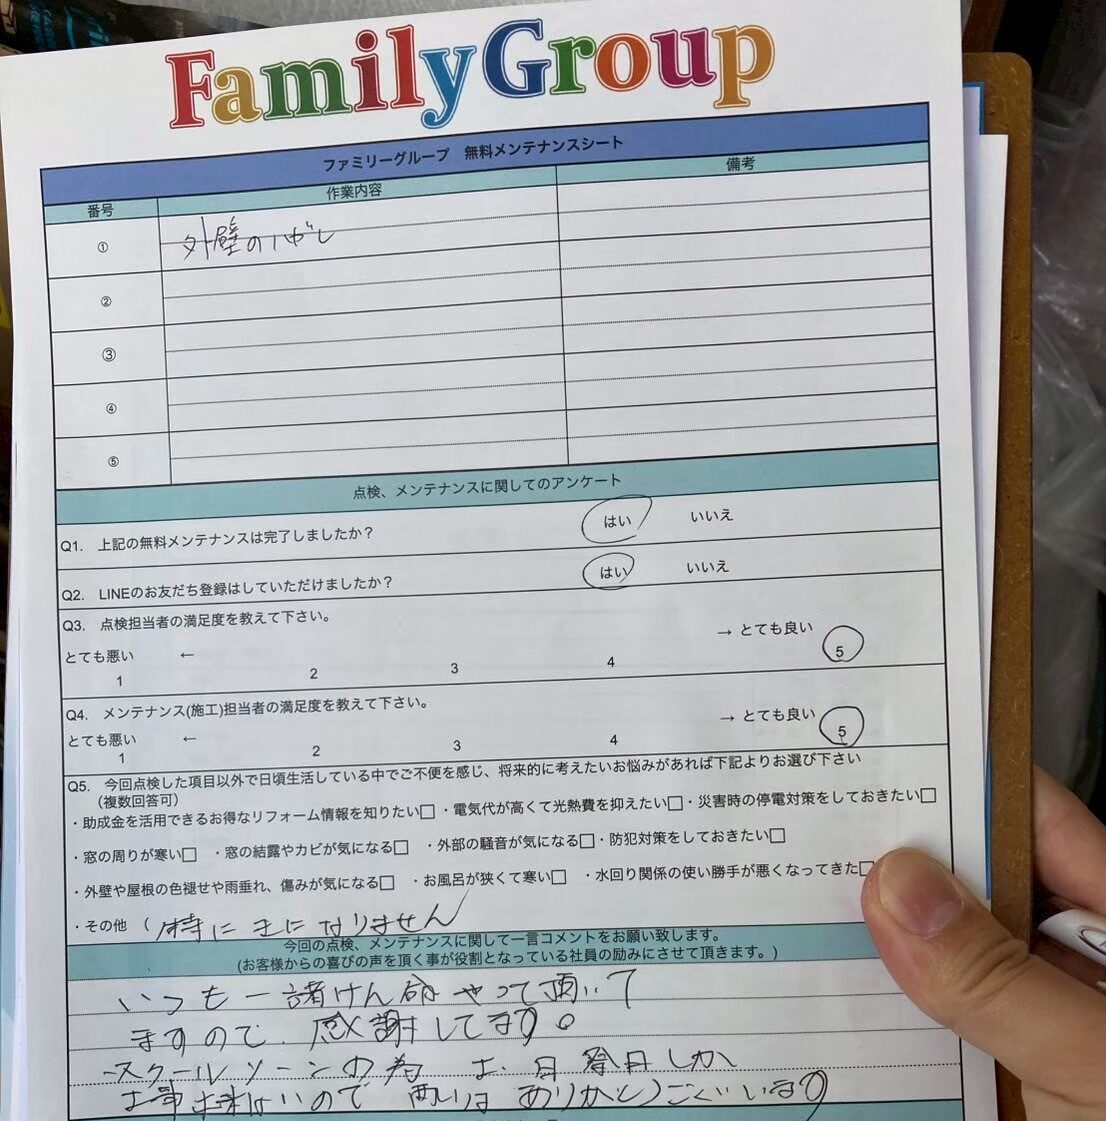 FamilyGroup
ファミリーグループ 無料メンテナンスシート
番号 作業内容 備考
① 外壁のハガレ
②
③
④
⑤
点検、メンテナンスに関してのアンケート
Q1. 上記の無料メンテナンスは完了しましたか？ はい いいえ
Q2. LINEのお友だち登録はしていただけましたか？ はい いいえ
Q3. 点検担当者の満足度を教えて下さい。
とても悪い ← → とても良い
1 2 3 4 5
Q4. メンテナンス(施工)担当者の満足度を教えて下さい。
とても悪い ← → とても良い
1 2 3 4 5
Q5. 今回点検した項目以外で日頃生活している中でご不便を感じ、将来的に考えたいお悩みがあれば下記よりお選び下さい
(複数回答可)
・助成金を活用できるお得なリフォーム情報を知りたい□ ・電気代が高くて光熱費を抑えたい□ ・災害時の停電対策をしておきたい□
・窓の周りが寒い□ ・窓の結露やカビが気になる□ ・外部の騒音が気になる□ ・防犯対策をしておきたい□
・外壁や屋根の色褪せや雨垂れ、傷みが気になる□ ・お風呂が狭くて寒い□ ・水回り関係の使い勝手が悪くなってきた□
・その他 ( 特に なりません
今回の点検、メンテナンスに関して一言コメントをお願い致します。
(お客様からの喜びの声を頂く事が役割となっている社員の励みにさせて頂きます。)
いつも一諸けん命やって頂いて
ますので、感謝してます。
スクールゾーンの為 日 しか
ので ありがとうございます